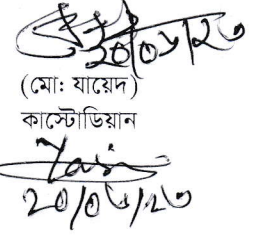 ২০/০৬/২৩
(মো: যায়েদ)
কাস্টোডিয়ান
২০/০৬/২৩